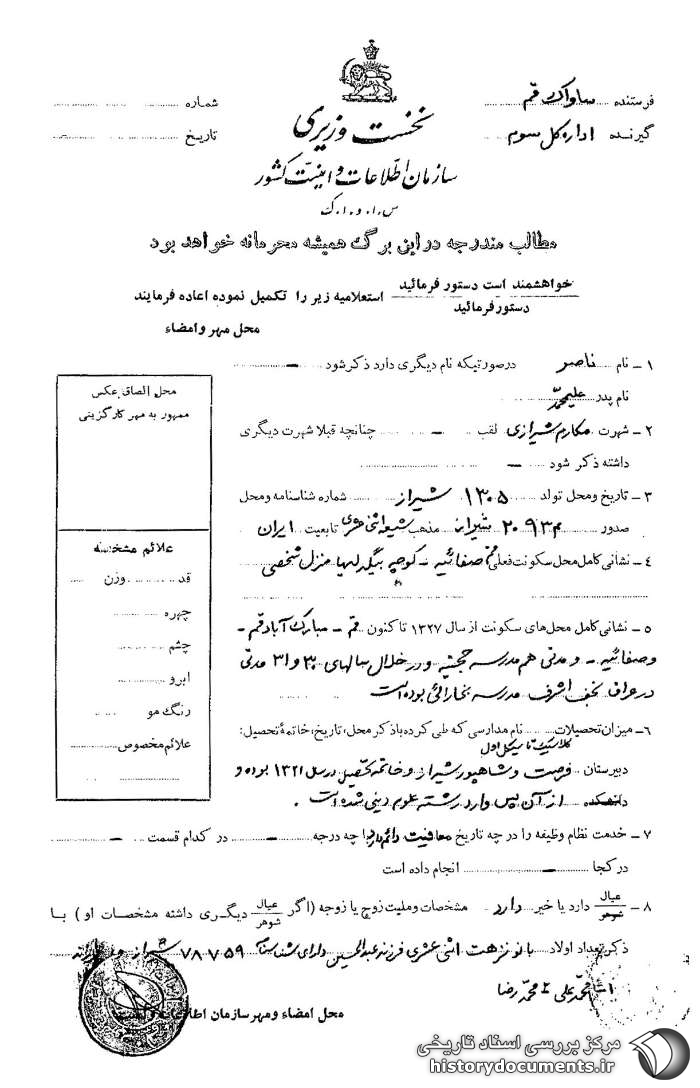 فرستنده ساواک قم
شماره
گیرنده اداره کل سوم
تاریخ
نخست وزیری
سازمان اطلاعات و امنیت کشور
س . ا . و . ا . ک
مطالب مندرجه در این برگ همیشه محرمانه خواهد بود
خواهشمند است دستور فرمائید
دستور فرمائید
استعلامیه زیر را تکمیل نموده اعاده فرمایند
محل مهر و امضاء
۱ – نام ناصر درصورتیکه نام دیگری دارد ذکر شود –
نام پدر علیمحمد
۲ – شهرت مکارم شیرازی لقب – چنانچه قبلا شهرت دیگری
داشته ذکر شود –
۳ – تاریخ و محل تولد ۱۳۰۵ شیراز شماره شناسنامه و محل
صدور ۲۰۹۳۴ شیراز مذهب شیعه اثنی عشری تابعیت ایران
۴ – نشانی کامل محل سکونت فعلی قم صفائیه – کوچه بیگدلیها منزل شخصی
۵ – نشانی کامل محل‌های سکونت از سال ۱۳۲۷ تا کنون قم – مبارک آباد قم –
و صفائیه – و مدتی هم مدرسه حجتیه و در خلال سالهای ۳۰ و ۳۱ مدتی
در عراق نجف اشرف مدرسه بخارائی بوده است
۶ – میزان تحصیلات نام مدارسی که طی کرده باذکر محل، تاریخ، خاتمهٔ تحصیل:
کلاسیک تا سیکل اول
دبیرستان فرصت و شاهپور شیراز و خاتمه تحصیل در سال ۱۳۲۱ بوده و
دانشکده از آن پس وارد رشته علوم دینی شده است .
۷ – خدمت نظام وظیفه را در چه تاریخ معافیت دائم دارد با چه درجه – در کدام قسمت –
در کجا – انجام داده است
۸ – عیال
شوهر
دارد یا خیر دارد مشخصات و ملیت زوج یا زوجه (اگر
عیال
شوهر
دیگری داشته مشخصات او ) با
ذکر تعداد اولاد بانو نزهت اثنی عشری فرزند عبدالحسین دارای شناسنامه ۷۸۷۵۹ شیراز
محمد علی محمد رضا
محل امضاء و مهر سازمان
محل الصاق عکس
ممهور به مهر کارگزینی
علائم مشخصه
قد وزن
چهره
چشم
ابرو
رنگ مو
علائم مخصوص
مرکز بررسی اسناد تاریخی
historydocuments.ir